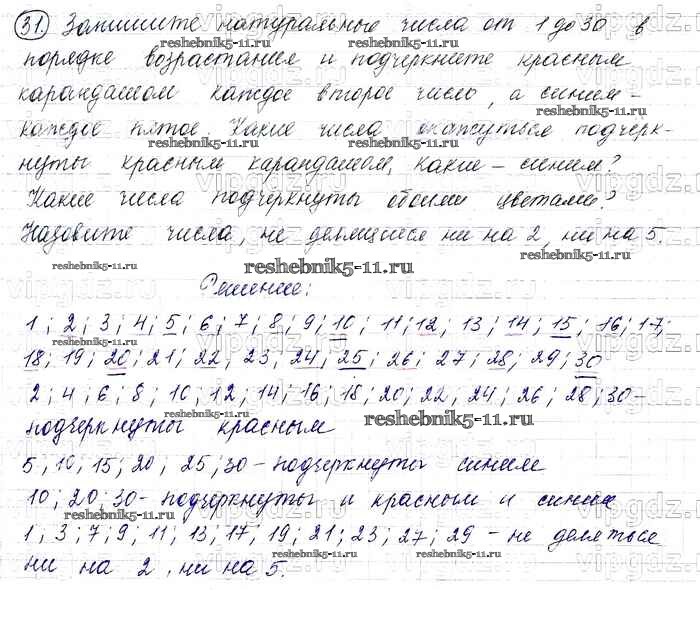 31. Запишите натуральные числа от 1 до 30 в
reshebnik5-11.ru
порядке возрастания и подчеркните красным
карандашом каждое второе число, а синим -
reshebnik5-11.ru
каждое пятое. Какие числа окажуться подчерк-
нуты красным карандашом, какие - синим?
reshebnik5-11.ru
Какие числа подчеркнуты обоими цветами?
Назовите числа, не делящиеся ни на 2, ни на 5.
reshebnik5-11.ru reshebnik5-11.ru
vipgdz.ru
Решение:
1; 2; 3; 4; 5; 6; 7; 8; 9; 10; 11; 12; 13; 14; 15; 16; 17;
18; 19; 20; 21; 22, 23, 24, 25; 26; 27; 28; 29; 30
2; 4; 6; 8; 10; 12; 14; 16; 18; 20; 22, 24; 26; 28; 30-
подчеркнуты красным
reshebnik5-11.ru
5; 10; 15; 20; 25; 30 - подчеркнуты синим
10; 20; 30 - подчеркнуты и красным и синим
reshebnik5-11.ru
1; 3; 7; 9; 11; 13; 17; 19; 21; 23; 27; 29 - не деляться
reshebnik5-11.ru
ни на 2, ни на 5.